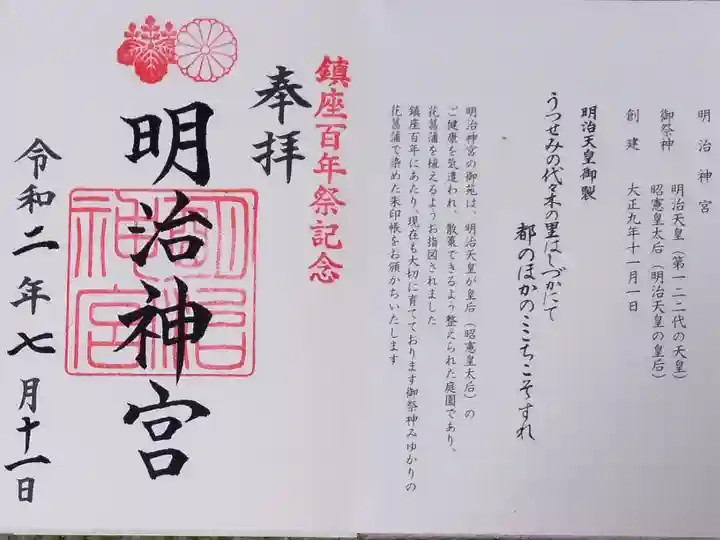 明治神宮
御祭神 明治天皇（第一二二代の天皇）
昭憲皇太后（明治天皇の皇后）
創建 大正九年十一月一日
明治天皇御製
うつせみの代々木の里はしづかにて
都のほかのここちこそすれ
明治神宮の御苑は、明治天皇が皇后（昭憲皇太后）の
ご健康を気遣われ、散策できるよう整えられた庭園であり、
花菖蒲を植えるようお指図されました
鎮座百年にあたり、現在も大切に育てております御祭神みゆかりの
花菖蒲で染めた朱印帳をお頒かちいたします
鎮座百年祭記念
奉拝
明治神宮
明治神宮
令和二年七月十一日